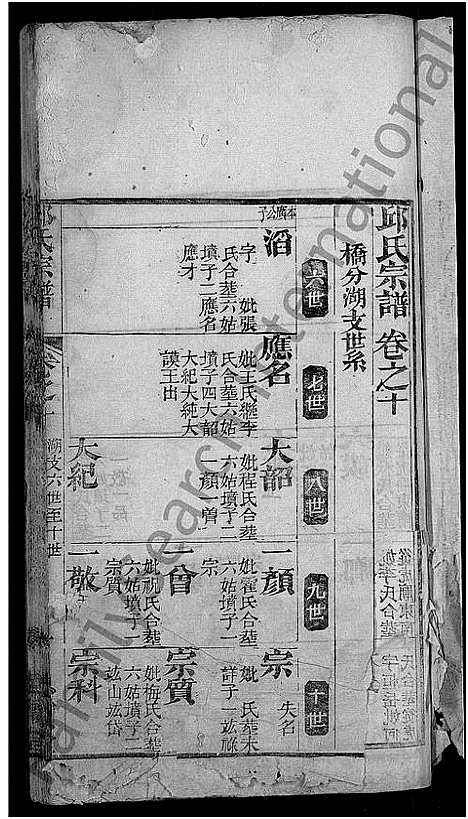 邱氏宗譜 卷之十
橋分湖支世系
六世
七世
八世
九世
十世
本廣公子
滔
字 妣張
氏合塟六姑
墳子二應名
應才
應名
妣王氏繼李
氏合塟六姑
墳子四大韶
大紀大純大
謨王出
大韶
妣程氏合塟
六姑墳子二
一顔一曾
大紀
一顔
妣霍氏合塟
六姑墳子一
宗
一曾
妣祝氏合塟
六姑墳子一
宗質
一敬
宗
失名
妣 氏塟未
詳子一竑
宗質
妣梅氏合塟
六姑墳子二
竑山竑岱
宗科
氏宗譜
卷之十
湖支六世至十世